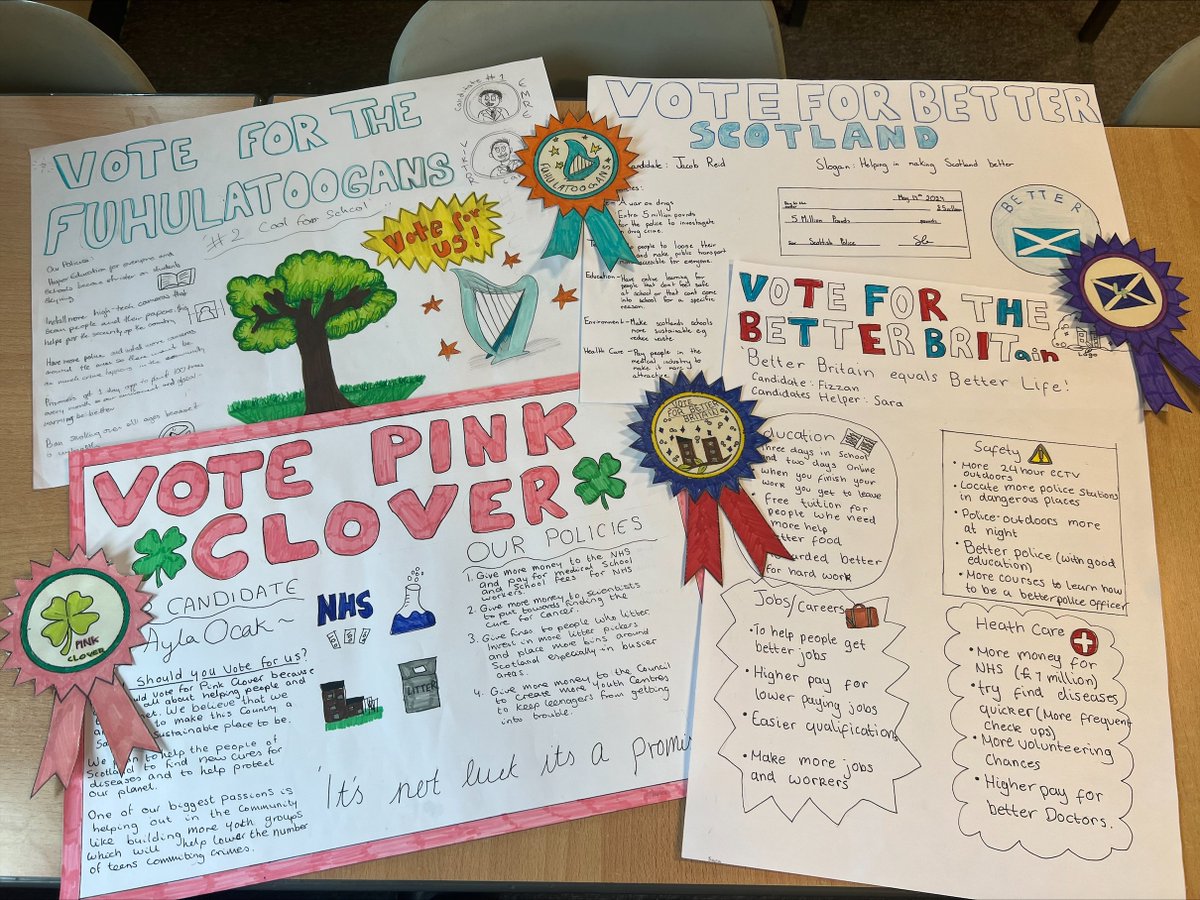 VOTE FOR THE
FUHULATOOGANS
#2 Cool for School
Candidate #1
EMRE
Vote for
US!
FUHULATOOGANS
Our Policies:
Hyper Education for everyone and
schools become stricter on students
Install more high-tech cameras that
scan people and their
help put the security up the country
Have more police and
around the
VOTE FOR BETTER
SCOTLAND
Candidate: Jacob Reid
Slogan: Helping in making Scotland better
A war on drugs
Extra 5 million pounds
for the police to investigate
drug crime.
people to loose their
and make public transport
more accessible for everyone.
Education - Have online learning for
people that dont feel safe
at school or that cant come
into school for a specific
reason
Environment - Make scotlands schools
more sustainable e.g
reduce waste.
Health Care - Pay people in the
medical industry to
make it more
attractive.
May 14th 2024
5 Million Pounds
pounds
Scottish Police
BETTER
VOTE FOR THE
BETTER BRITain
Logo
'Better Britain equals Better Life!
Candidate: Fizzan
Candidates Helper: Sara
VOTE
FOR BETTER
BRITAIN
Education
Three days in school
and two days online
when you finish your
work you get to leave
• free tuition for
people who need
more help
better food
rewarded better
for hard work
Safety
• More 24 hour cctv
outdoors
• Locate more police stations
in dangerous places
• Police outdoors more
at night
• Better police (with good
education)
• More courses to learn how
to be a better police officer
Jobs/Careers
• To help people get
better jobs
• Higher pay for
lower paying jobs
• Easier qualifications
• Make more jobs
and workers
Heath Care
• More money for
NHS (£ 1 million)
• try find diseases
quicker (More frequent
check ups)
• More volunteering
Chances
• Higher pay for
better Doctors.
VOTE PINK
CLOVER
PINK
CLOVER
CANDIDATE
Ayla Ocak~
should you Vote for us?
vote for Pink Clover because
all about helping people and
We believe that we
to make this Country a
Sustainable place to be.
to help the people of
Scotland to find new cures for
diseases and to help protect
our planet.
One of our biggest passions is
helping out in the community
like building more yoth groups
which will help lower the number
of teens commiting crimes.
NHS
LITTER
OUR POLICIES
1. Give more money to the NHS
and pay for medical School
and School fees for NHS
workers.
2. Give more money to scientists
to put towards finding the
cure for Cancer.
3. Give fines to people who litter.
Invest in more litter pickers
and place more bins around
Scotland especially in busier
areas.
4. Give more money to the Council
to create more Youth Centres
to keep teenagers from getting
into trouble.
'It's not luck its a promis